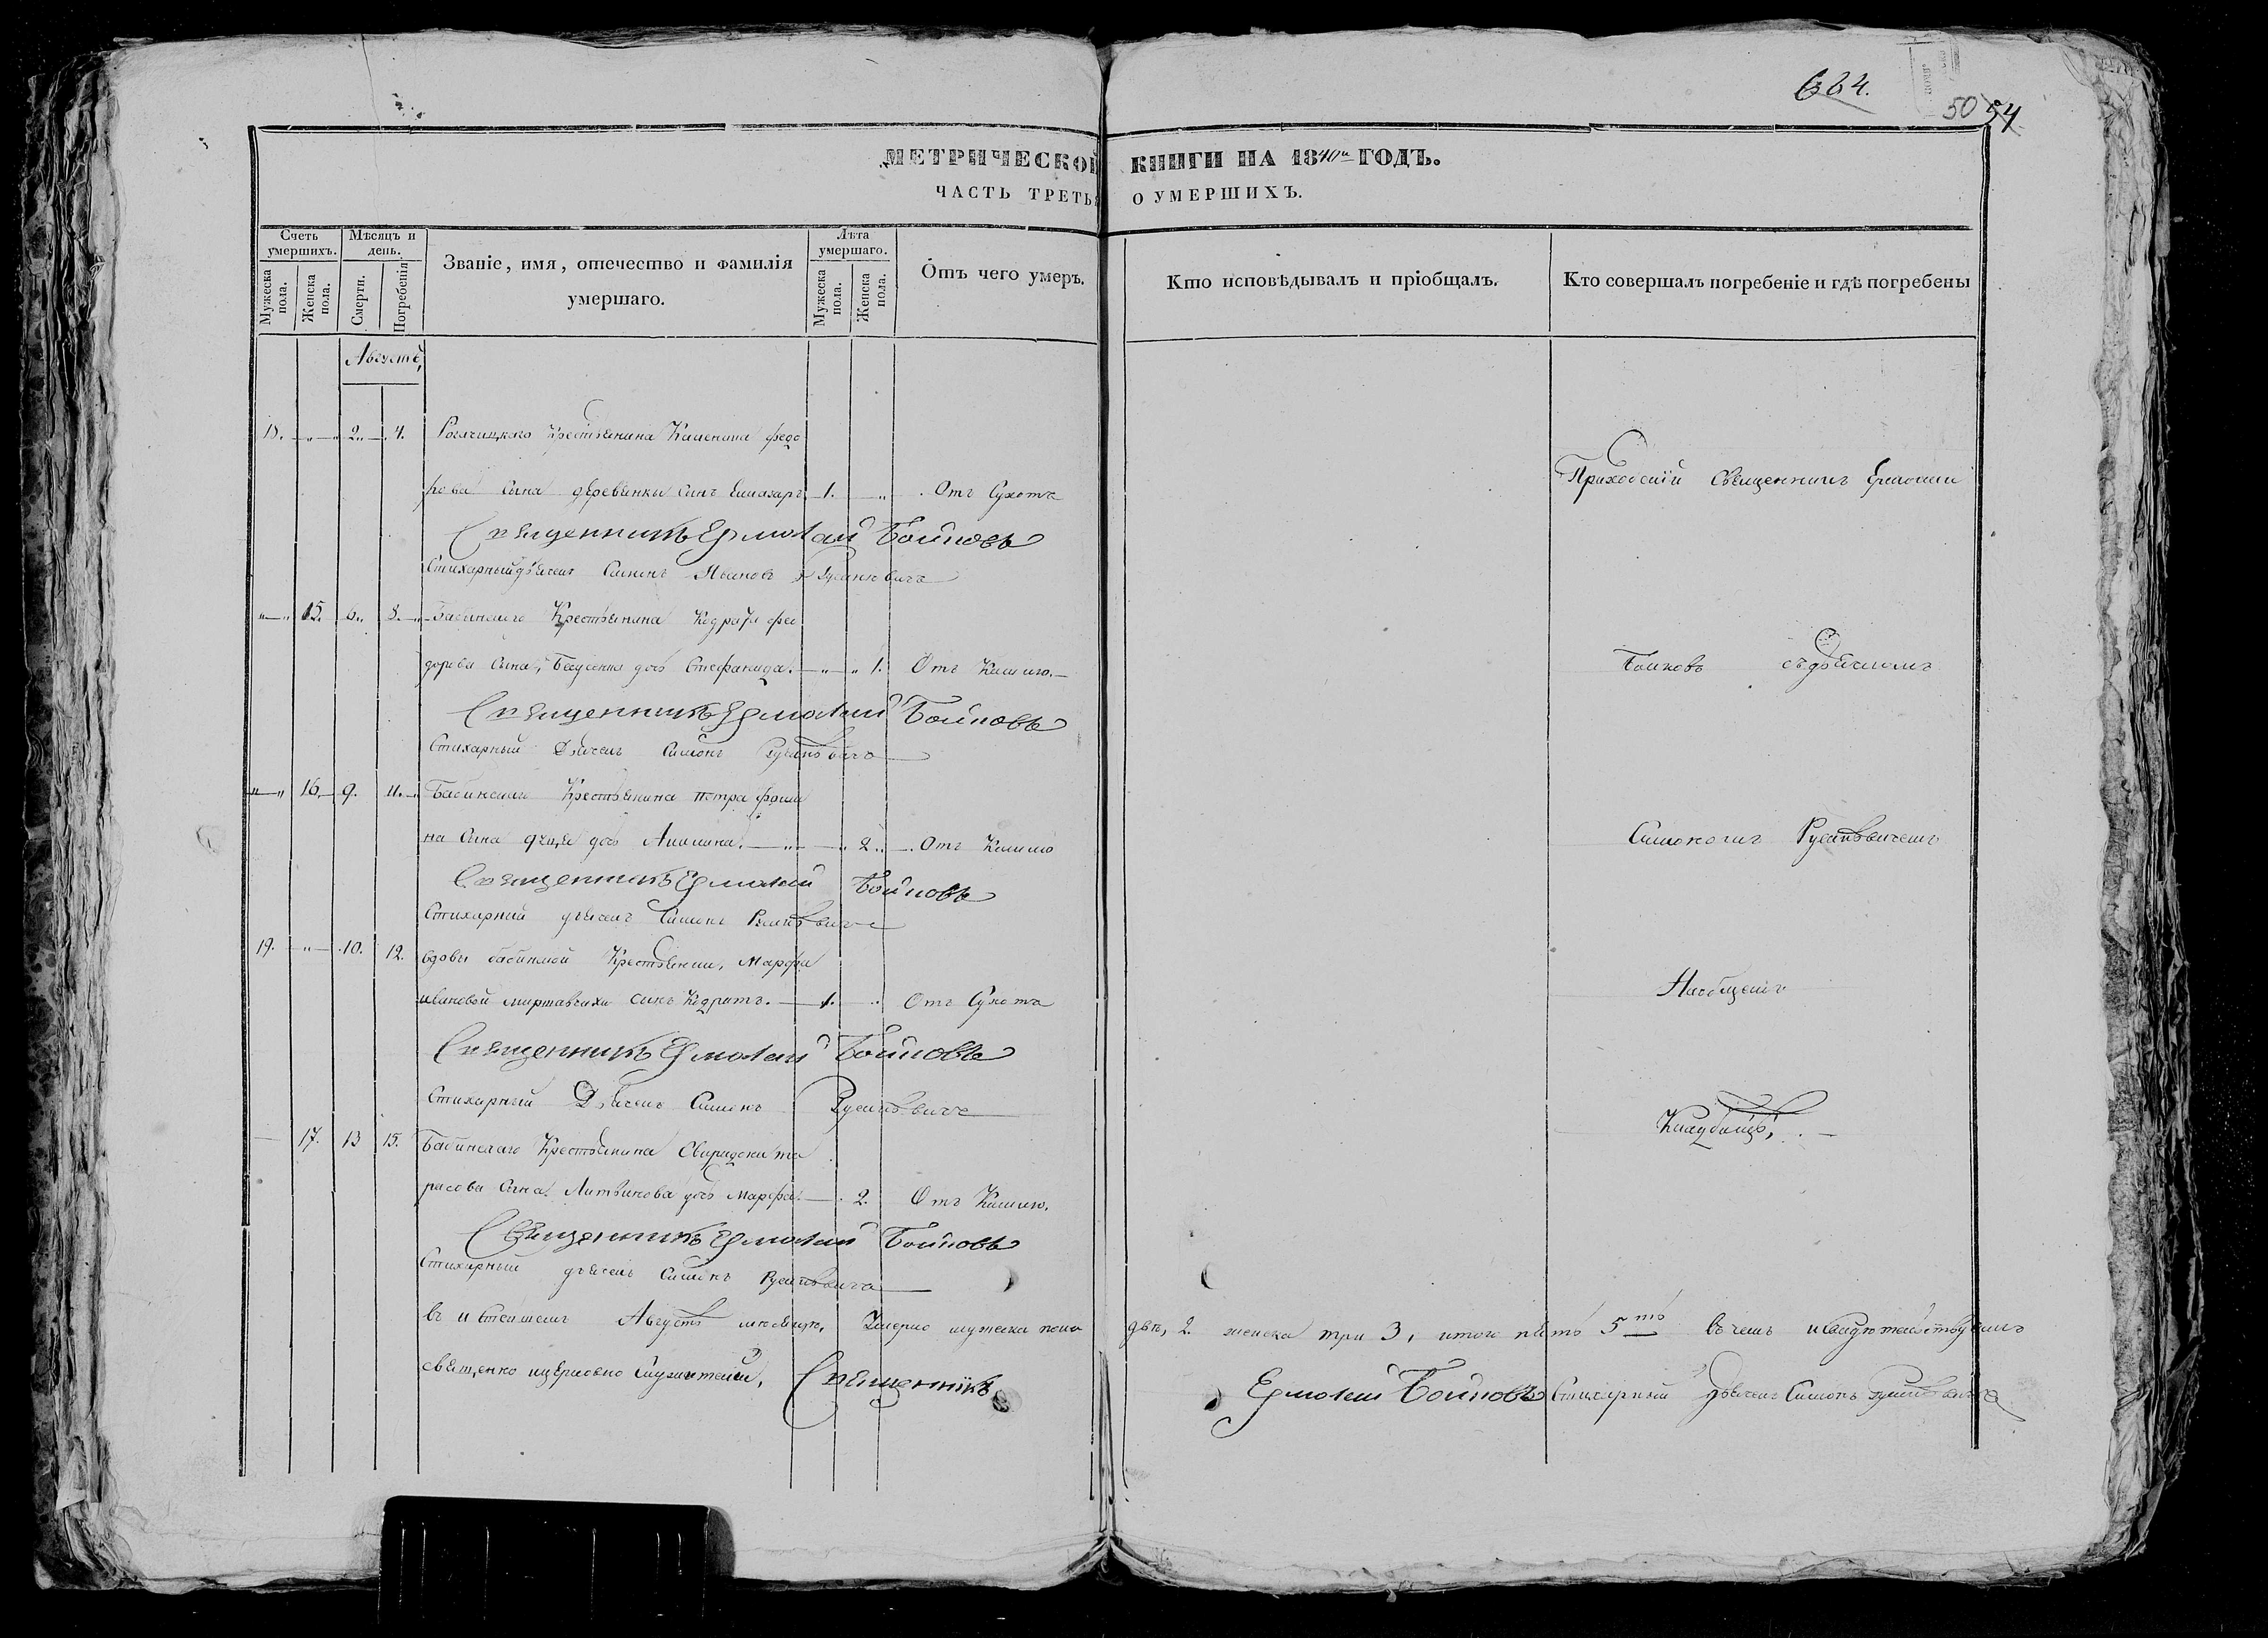 664.
50 54
МЕТРИЧЕСКОЙ КНИГИ НА 1840й ГОДЪ.
ЧАСТЬ ТРЕТЬЯ О УМЕРШИХЪ.
Счетъ умершихъ.
Мужеска пола.
Женска пола.
Мѣсяцъ и день.
Смерти.
Погребенія
Званіе, имя, отечество и фамилія умершаго.
Лѣта умершаго.
Мужеска пола.
Женска пола.
Отъ чего умеръ.
Кто исповѣдывалъ и пріобщалъ.
Кто совершалъ погребеніе и гдѣ погребены
Августъ,
18. 2. 4. Рогачицкаго Крестьянина Климента федо
рова сына деревянки сынъ 1. Отъ Сухотъ
Священникъ Ермолай Бойновъ
Стихарный дьячекъ Симонъ Ивановъ
15. 6. 8. Бабинскаго Крестьянина Кодрата фео
дорова Сына, дочь Стефанида. 1. Отъ Кашлю.
Священникъ Ермолай Бойновъ
Стихарный Дьячекъ Симонъ Русиновичъ
16. 9. 11. Бабинскаго Крестьянина петра фоми
на Сына дочь Акилина. 2. Отъ Кашлю
Священникъ Ермолай Бойновъ
Стихарный дьячекъ Симонъ Русиновичъ
19. 10. 12. вдовы бабинской Крестьянки, Марфы
ивановой сынъ Кодратъ. 1. Отъ Сухотъ
Священникъ Ермолай Бойновъ
Стихарный Дьячекъ Симонъ Русиновичъ
17. 13 15. Бабинскаго Крестьянина Свиридона та
расова Сына Литвинова дочь Марфа. 2. Отъ Кашлю.
Священникъ Ермолай Бойновъ
Стихарный дьячекъ Симонъ Русиновичъ
Приходскій Священникъ Ермолай
Бойновъ съ дьячкомъ
Симономъ Русиновичемъ
На общемъ
Кладбищѣ,
въ Августѣ месяцѣ, Умерло мужеска пола двѣ, 2. женска три 3, итого пять 5ть въ чемъ и свидетельствуемъ
священно церковно служители, Священникъ Ермолай Бойновъ Стихарный дьячекъ Симонъ Русиновичъ